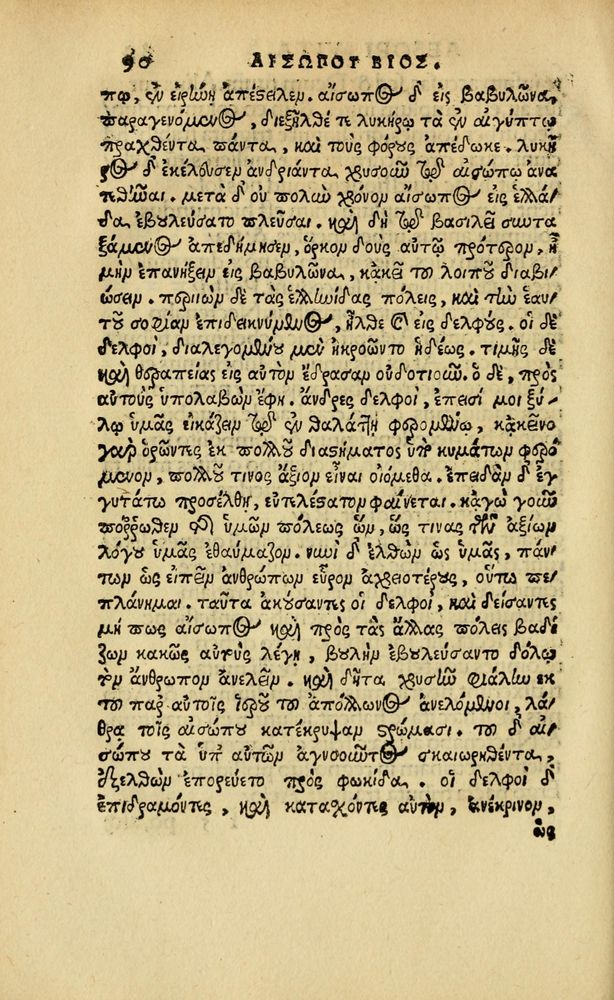 90 ΑΙΣΩΠΟΥ ΒΙΟΣ.
πῳ, ἐν εἰρήνῃ ἀπέστειλεν. αἴσωπος δ' εἰς βαβυλῶνα,
παραγενόμενος, διεξῆλθέ τε λυκήρῳ τὰ ἐν αἰγύπτῳ
πραχθέντα πάντα, καὶ τοὺς φόρους ἀπέδωκε. λυκῆ
ρος δ' ἐκέλευσεν ἀνδριάντα χρυσοῦν τῷ αἰσώπῳ ἀνα
τεθῆναι. μετὰ δ' οὐ πολὺν χρόνον αἴσωπος εἰς ἑλλά/
δα ἐβουλεύσατο πλεῦσαι. καὶ δὴ τῷ βασιλεῖ συντα
ξάμενος ἀπεδήμησεν, ὅρκον δοὺς αὐτῷ πρότερον, ἦ
μὴν ἐπανήξειν εἰς βαβυλῶνα, κἀκεῖ τοῦ λοιποῦ διαβι/
ώσειν. περιιὼν δὲ τὰς ἑλληνίδας πόλεις, καὶ τὴν ἑαυ/
τοῦ σοφίαν ἐπιδεικνύμενος, ἦλθε καὶ εἰς δελφούς. οἱ δὲ
δελφοὶ, διαλεγομένου μὲν ἠκροῶντο ἡδέως. τιμῆς δὲ
καὶ θεραπείας εἰς αὐτὸν ἔδρασαν οὐδοτιοῦν. ὁ δὲ, πρὸς
αὐτοὺς ὑπολαβὼν ἔφη. ἄνδρες δελφοὶ, ἔπεισί μοι ξύ/
λῳ ὑμᾶς εἰκάζειν τῷ ἐν θαλάττῃ φερομένῳ, κἀκεῖνο
γὰρ ὁρῶντες ἐκ πολλοῦ διαστήματος ὑπὸ κυμάτων φερό/
μενον, πολλοῦ τινος ἄξιον εἶναι οἰόμεθα. ἐπειδὰν δ' ἐγ
γυτάτω προσέλθῃ, εὐτελέστατον φαίνεται. κἀγὼ γοῦν
πόῤῥωθεν τῆς ὑμῶν πόλεως ὢν, ὥς τινας τῶν ἀξίων
λόγου ὑμᾶς ἐθαύμαζον. νυνὶ δ' ἐλθὼν ὡς ὑμᾶς, πάν/
των ὡς εἰπεῖν ἀνθρώπων εὗρον ἀχρειοτέρους, οὕτω πε
πλάνημαι. ταῦτα ἀκούσαντες οἱ δελφοὶ, καὶ δείσαντες
μή πως αἴσωπος καὶ πρὸς τὰς ἄλλας πόλεις βαδί
ζων κακῶς αὐτοὺς λέγῃ, βουλὴν ἐβουλεύσαντο δόλῳ
τὸν ἄνθρωπον ἀνελεῖν. καὶ δῆτα χρυσῆν φιάλην ἐκ
τοῦ παρ' αὐτοῖς ἱεροῦ τοῦ ἀπόλλωνος ἀνελόμενοι, λά/
θρα τοῖς αἰσώπου κατέκρυψαν στρώμασι. τοῦ δ' αἰ
σώπου τὰ ὑπ' αὐτῶν ἀγνοοῦντος σκαιωρηθέντα,
ἐξελθὼν ἐπορεύετο πρὸς φωκίδα. οἱ δελφοὶ δ'
ἐπιδραμόντες, καὶ κατασχόντες αὐτὸν, ἀνέκρινον,
ὡς